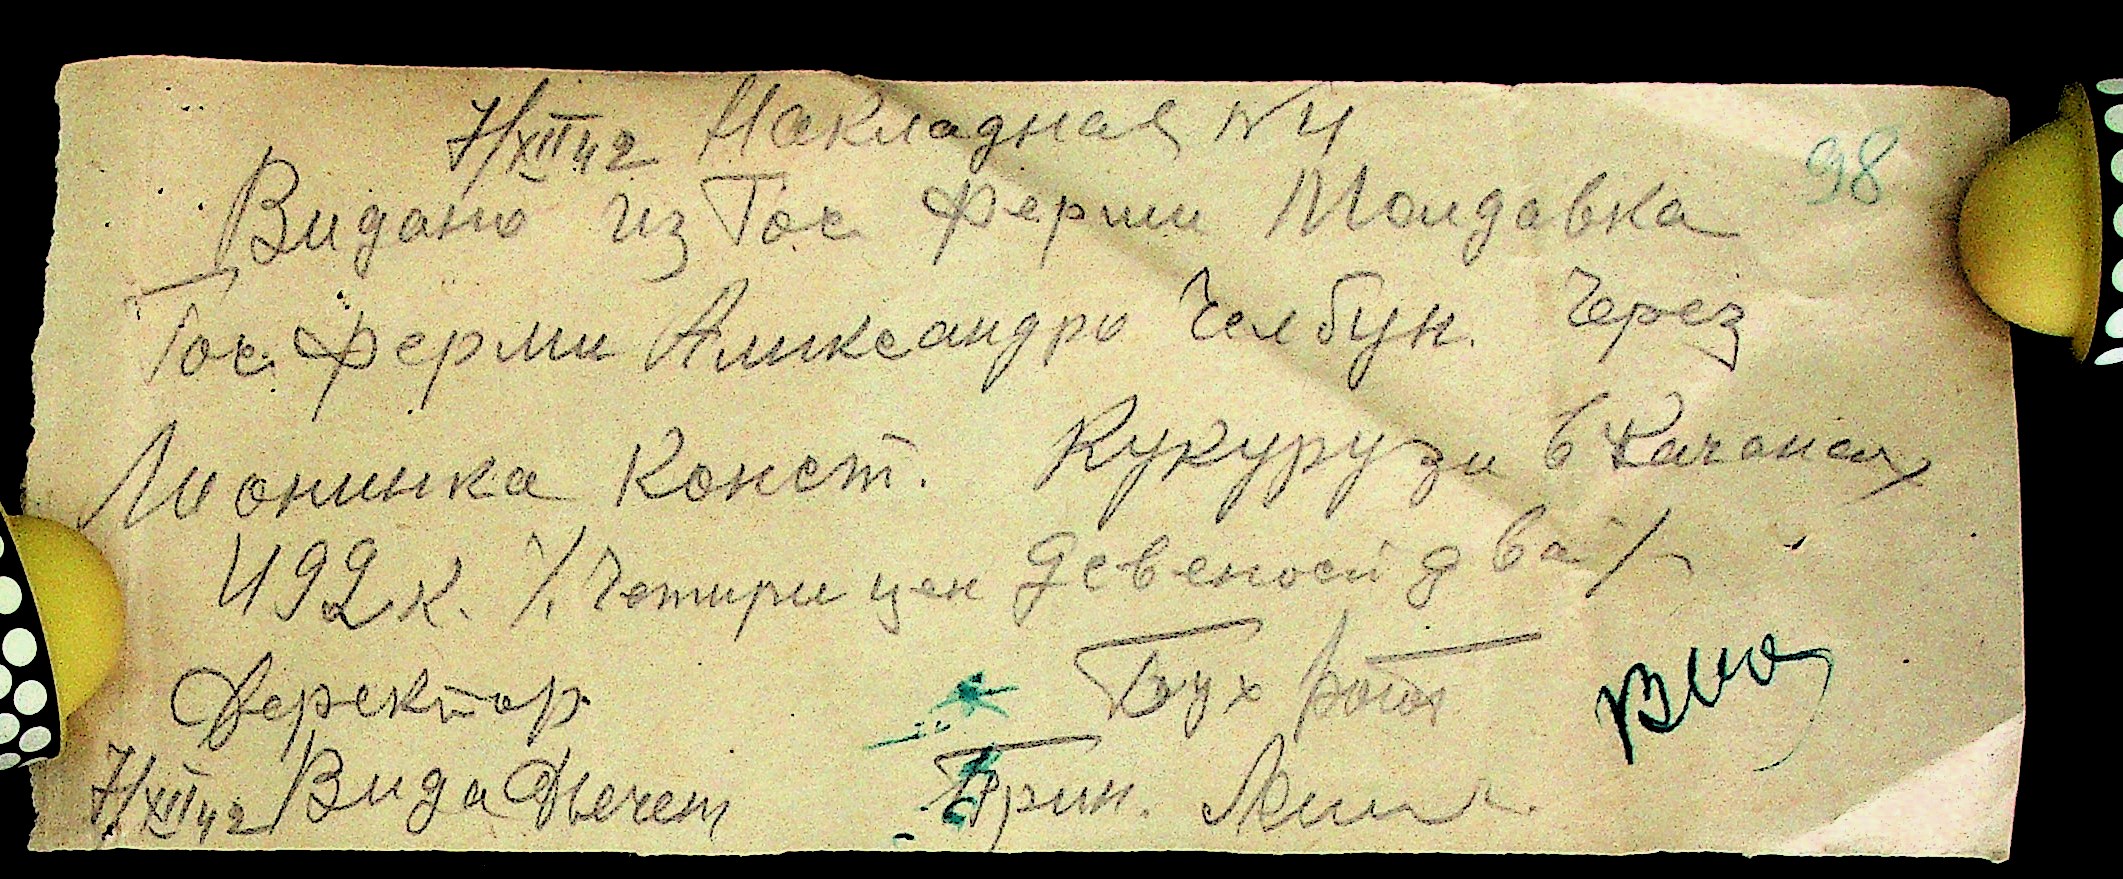 7/XII 42 Накладная №4
98
Видано из Гос. Ферми Молдавка
Гос. Ферми Александру Челбун. Через
Лионинка Конст. Кукурузи в Качанах
492 к. /. Четири цен девеност два /.
Деректор Бух
7/XII 42 Вида Прин.